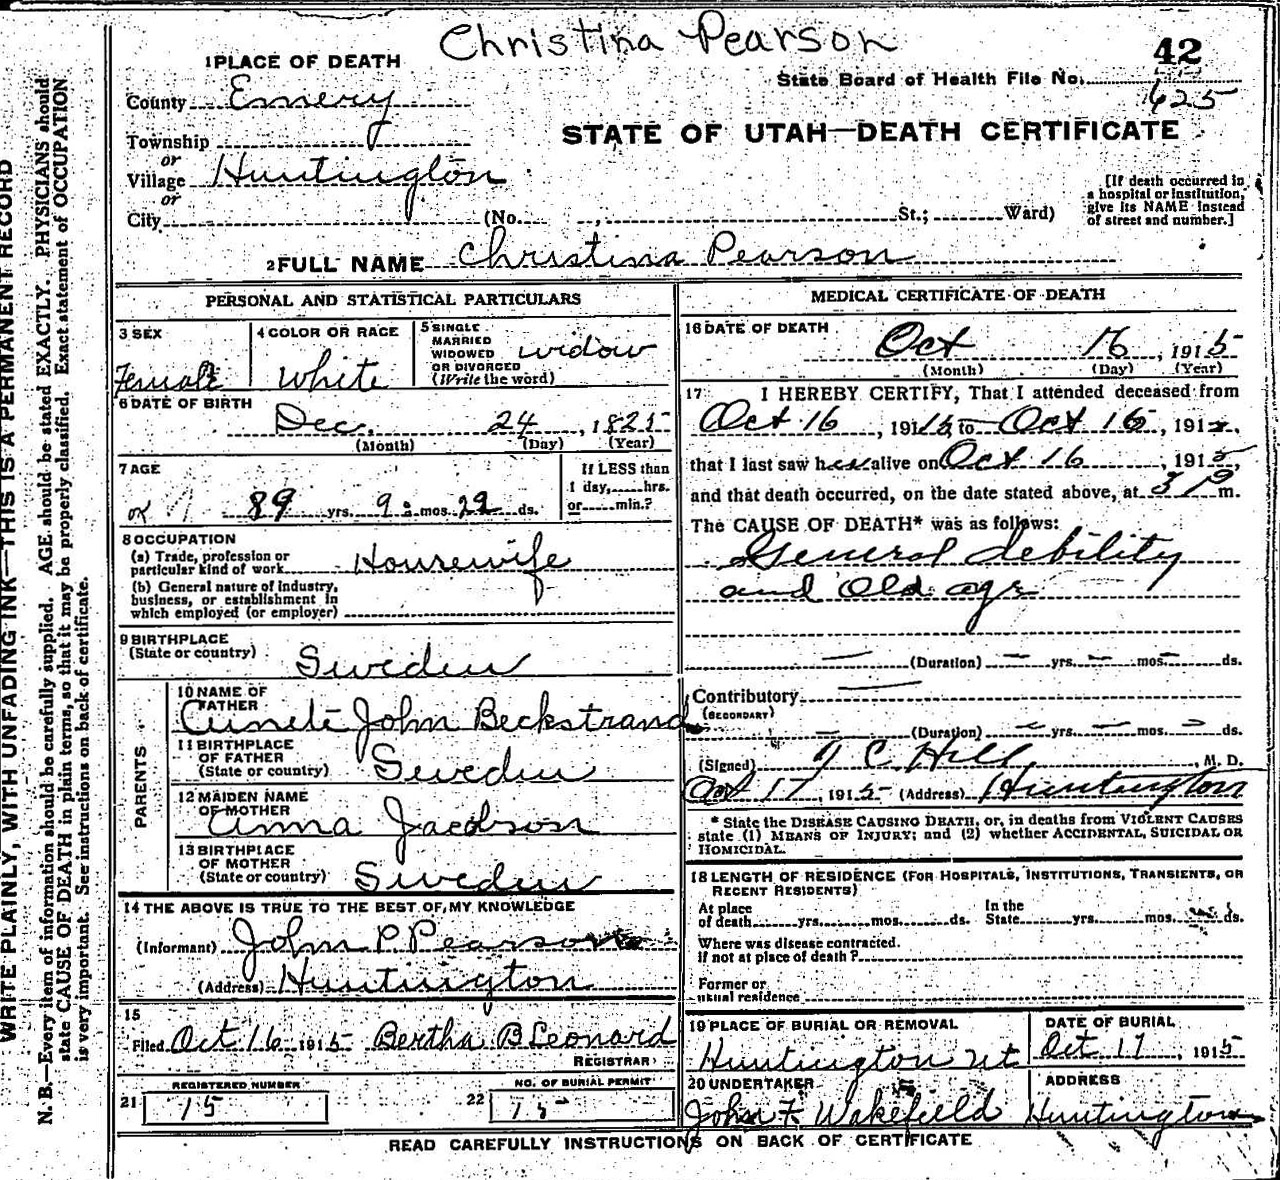 Christina Pearson
42
1 PLACE OF DEATH
State Board of Health File No. 625
County Emery
STATE OF UTAH—DEATH CERTIFICATE
Township
or
Village Huntington
or
City (No. , St.; Ward)
[If death occurred in
a hospital or institution,
give its NAME instead
of street and number.]
2 FULL NAME Christina Pearson
PERSONAL AND STATISTICAL PARTICULARS
3 SEX
Female
4 COLOR OR RACE
White
5 SINGLE
MARRIED
WIDOWED
OR DIVORCED
(Write the word)
widow
6 DATE OF BIRTH
Dec. 24, 1825
(Month) (Day) (Year)
7 AGE
89 yrs. 9 mos. 22 ds.
If LESS than
1 day, hrs.
or min.?
8 OCCUPATION
(a) Trade, profession or
particular kind of work Housewife
(b) General nature of industry,
business, or establishment in
which employed (or employer)
9 BIRTHPLACE
(State or country) Sweden
PARENTS
10 NAME OF
FATHER
John Beckstrand
11 BIRTHPLACE
OF FATHER
(State or country) Sweden
12 MAIDEN NAME
OF MOTHER
Anna Jacobson
13 BIRTHPLACE
OF MOTHER
(State or country) Sweden
14 THE ABOVE IS TRUE TO THE BEST OF MY KNOWLEDGE
(Informant) John P. Pearson
(Address) Huntington
15
Filed Oct 16 1915 Bertha B Leonard
REGISTRAR
REGISTERED NUMBER
21 15
NO. OF BURIAL PERMIT
22 15
MEDICAL CERTIFICATE OF DEATH
16 DATE OF DEATH
Oct 16, 1915
(Month) (Day) (Year)
17 I HEREBY CERTIFY, That I attended deceased from
Oct 16, 1915, to Oct 16, 191
that I last saw her alive on Oct 16, 1915,
and that death occurred, on the date stated above, at 3 P m.
The CAUSE OF DEATH* was as follows:
General debility
and Old age
(Duration) — yrs. — mos. — ds.
Contributory —
(SECONDARY)
(Duration) — yrs. — mos. — ds.
(Signed) C. Hill, M. D.
Oct 17, 1915 (Address) Huntington
* State the DISEASE CAUSING DEATH, or, in deaths from VIOLENT CAUSES
state (1) MEANS OF INJURY; and (2) whether ACCIDENTAL, SUICIDAL OR
HOMICIDAL.
18 LENGTH OF RESIDENCE (FOR HOSPITALS, INSTITUTIONS, TRANSIENTS, OR
RECENT RESIDENTS)
At place
of death yrs. mos. ds.
In the
State yrs. mos. ds.
Where was disease contracted.
If not at place of death?
Former or
usual residence
19 PLACE OF BURIAL OR REMOVAL
Huntington Ut
DATE OF BURIAL
Oct 17, 1915
20 UNDERTAKER
John F. Wakefield
ADDRESS
Huntington
READ CAREFULLY INSTRUCTIONS ON BACK OF CERTIFICATE
WRITE PLAINLY, WITH UNFADING INK—THIS IS A PERMANENT RECORD
N. B.—Every item of information should be carefully supplied. AGE should be stated EXACTLY. PHYSICIANS should
state CAUSE OF DEATH in plain terms, so that it may be properly classified. Exact statement of OCCUPATION
is very important. See instructions on back of certificate.